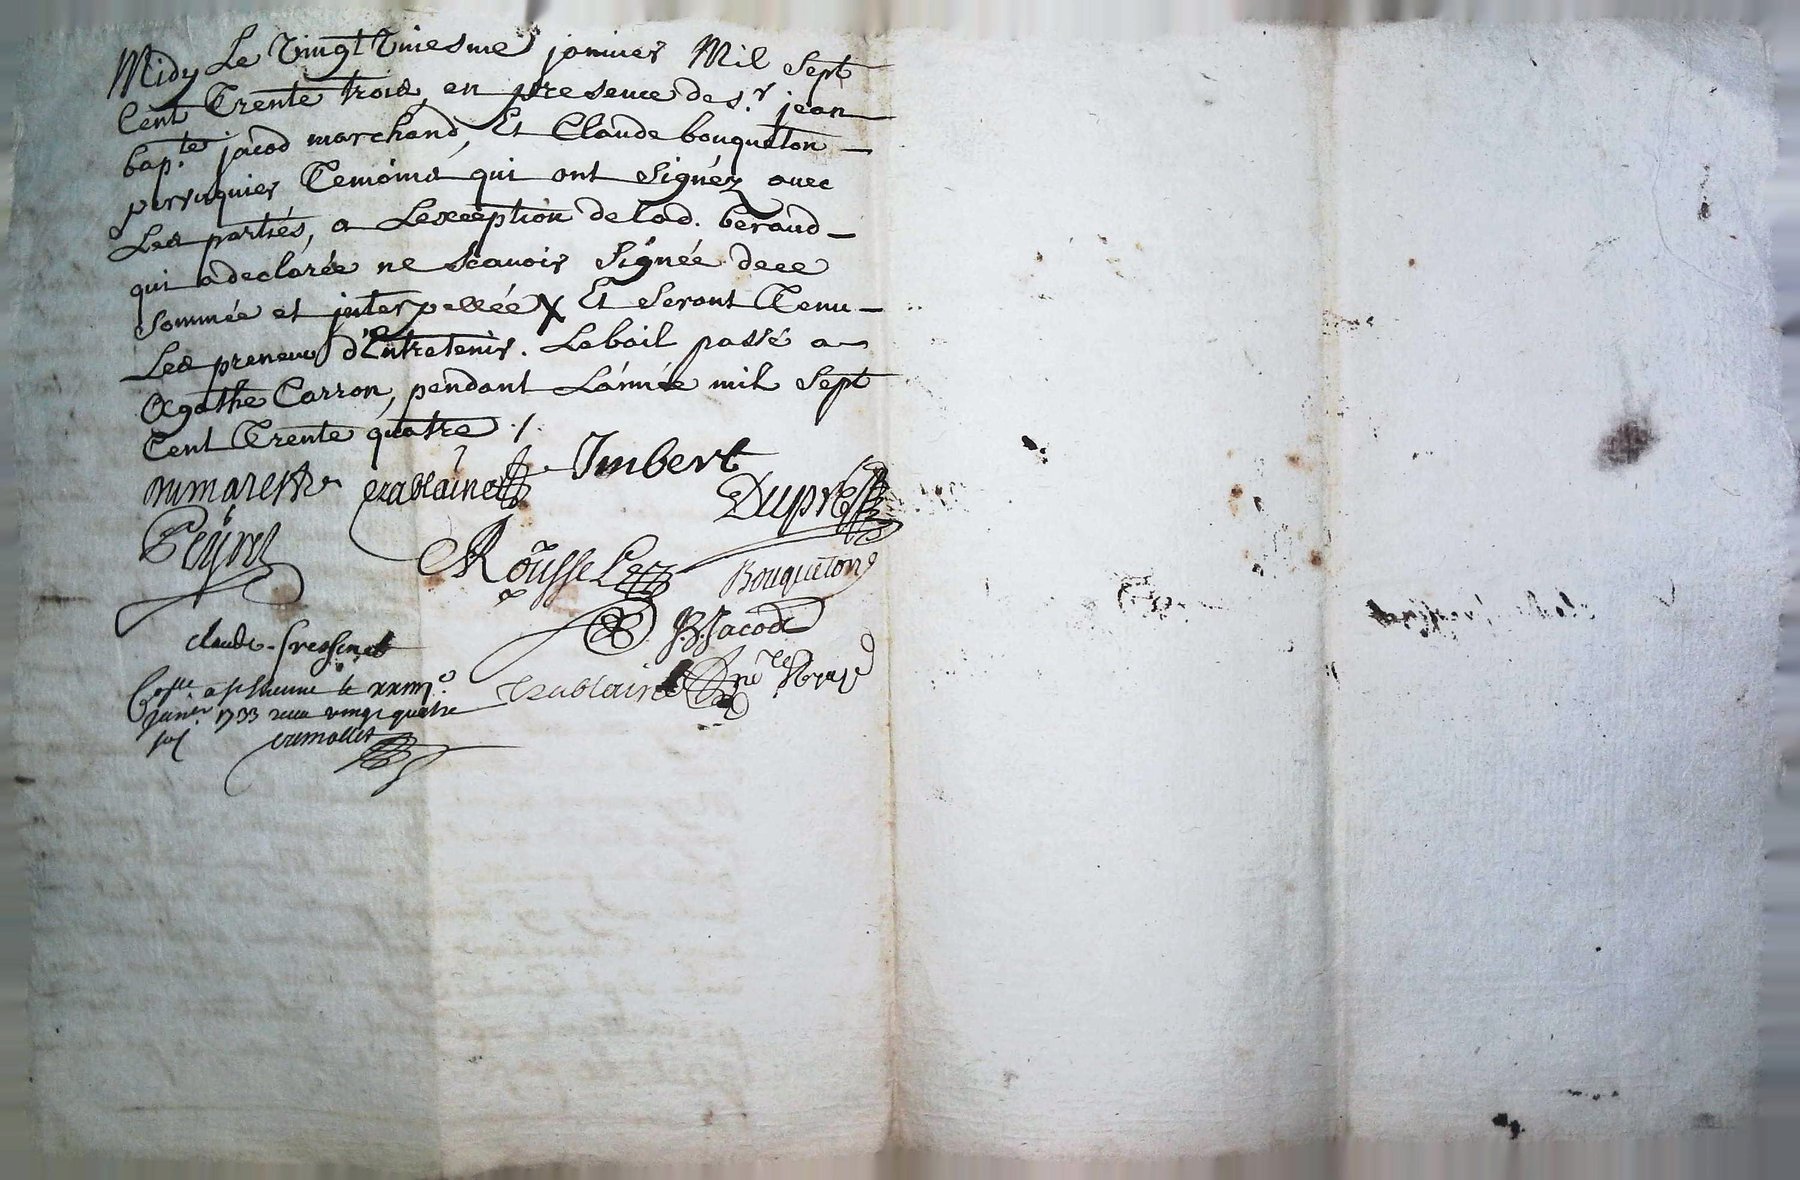 Midy Le Vingt Uniesme janvier Mil Sept
Cent Trente trois, en presence de s.r jean
bap.te jacod marchand, Et Claude bouqueton
perruquier Temoins qui ont Signéz avec
Les partiés, a Lexception de lad. beraud
qui a declarée ne Scavoir Signée dece
Sommée et jnterpellée X Et Seront Tenu
Les preneurs d'Entretenir. Le bail passé a
Agathe Carron, pendant L'année mil Sept
Cent Trente quatre ./.
Imbert
Dupré
Peyret
Rousselez
Bouqueton
JB Jacod
claude fressinet
a st Etienne le xxiiii.e
janvr 1733 receu vingt quatre
sols